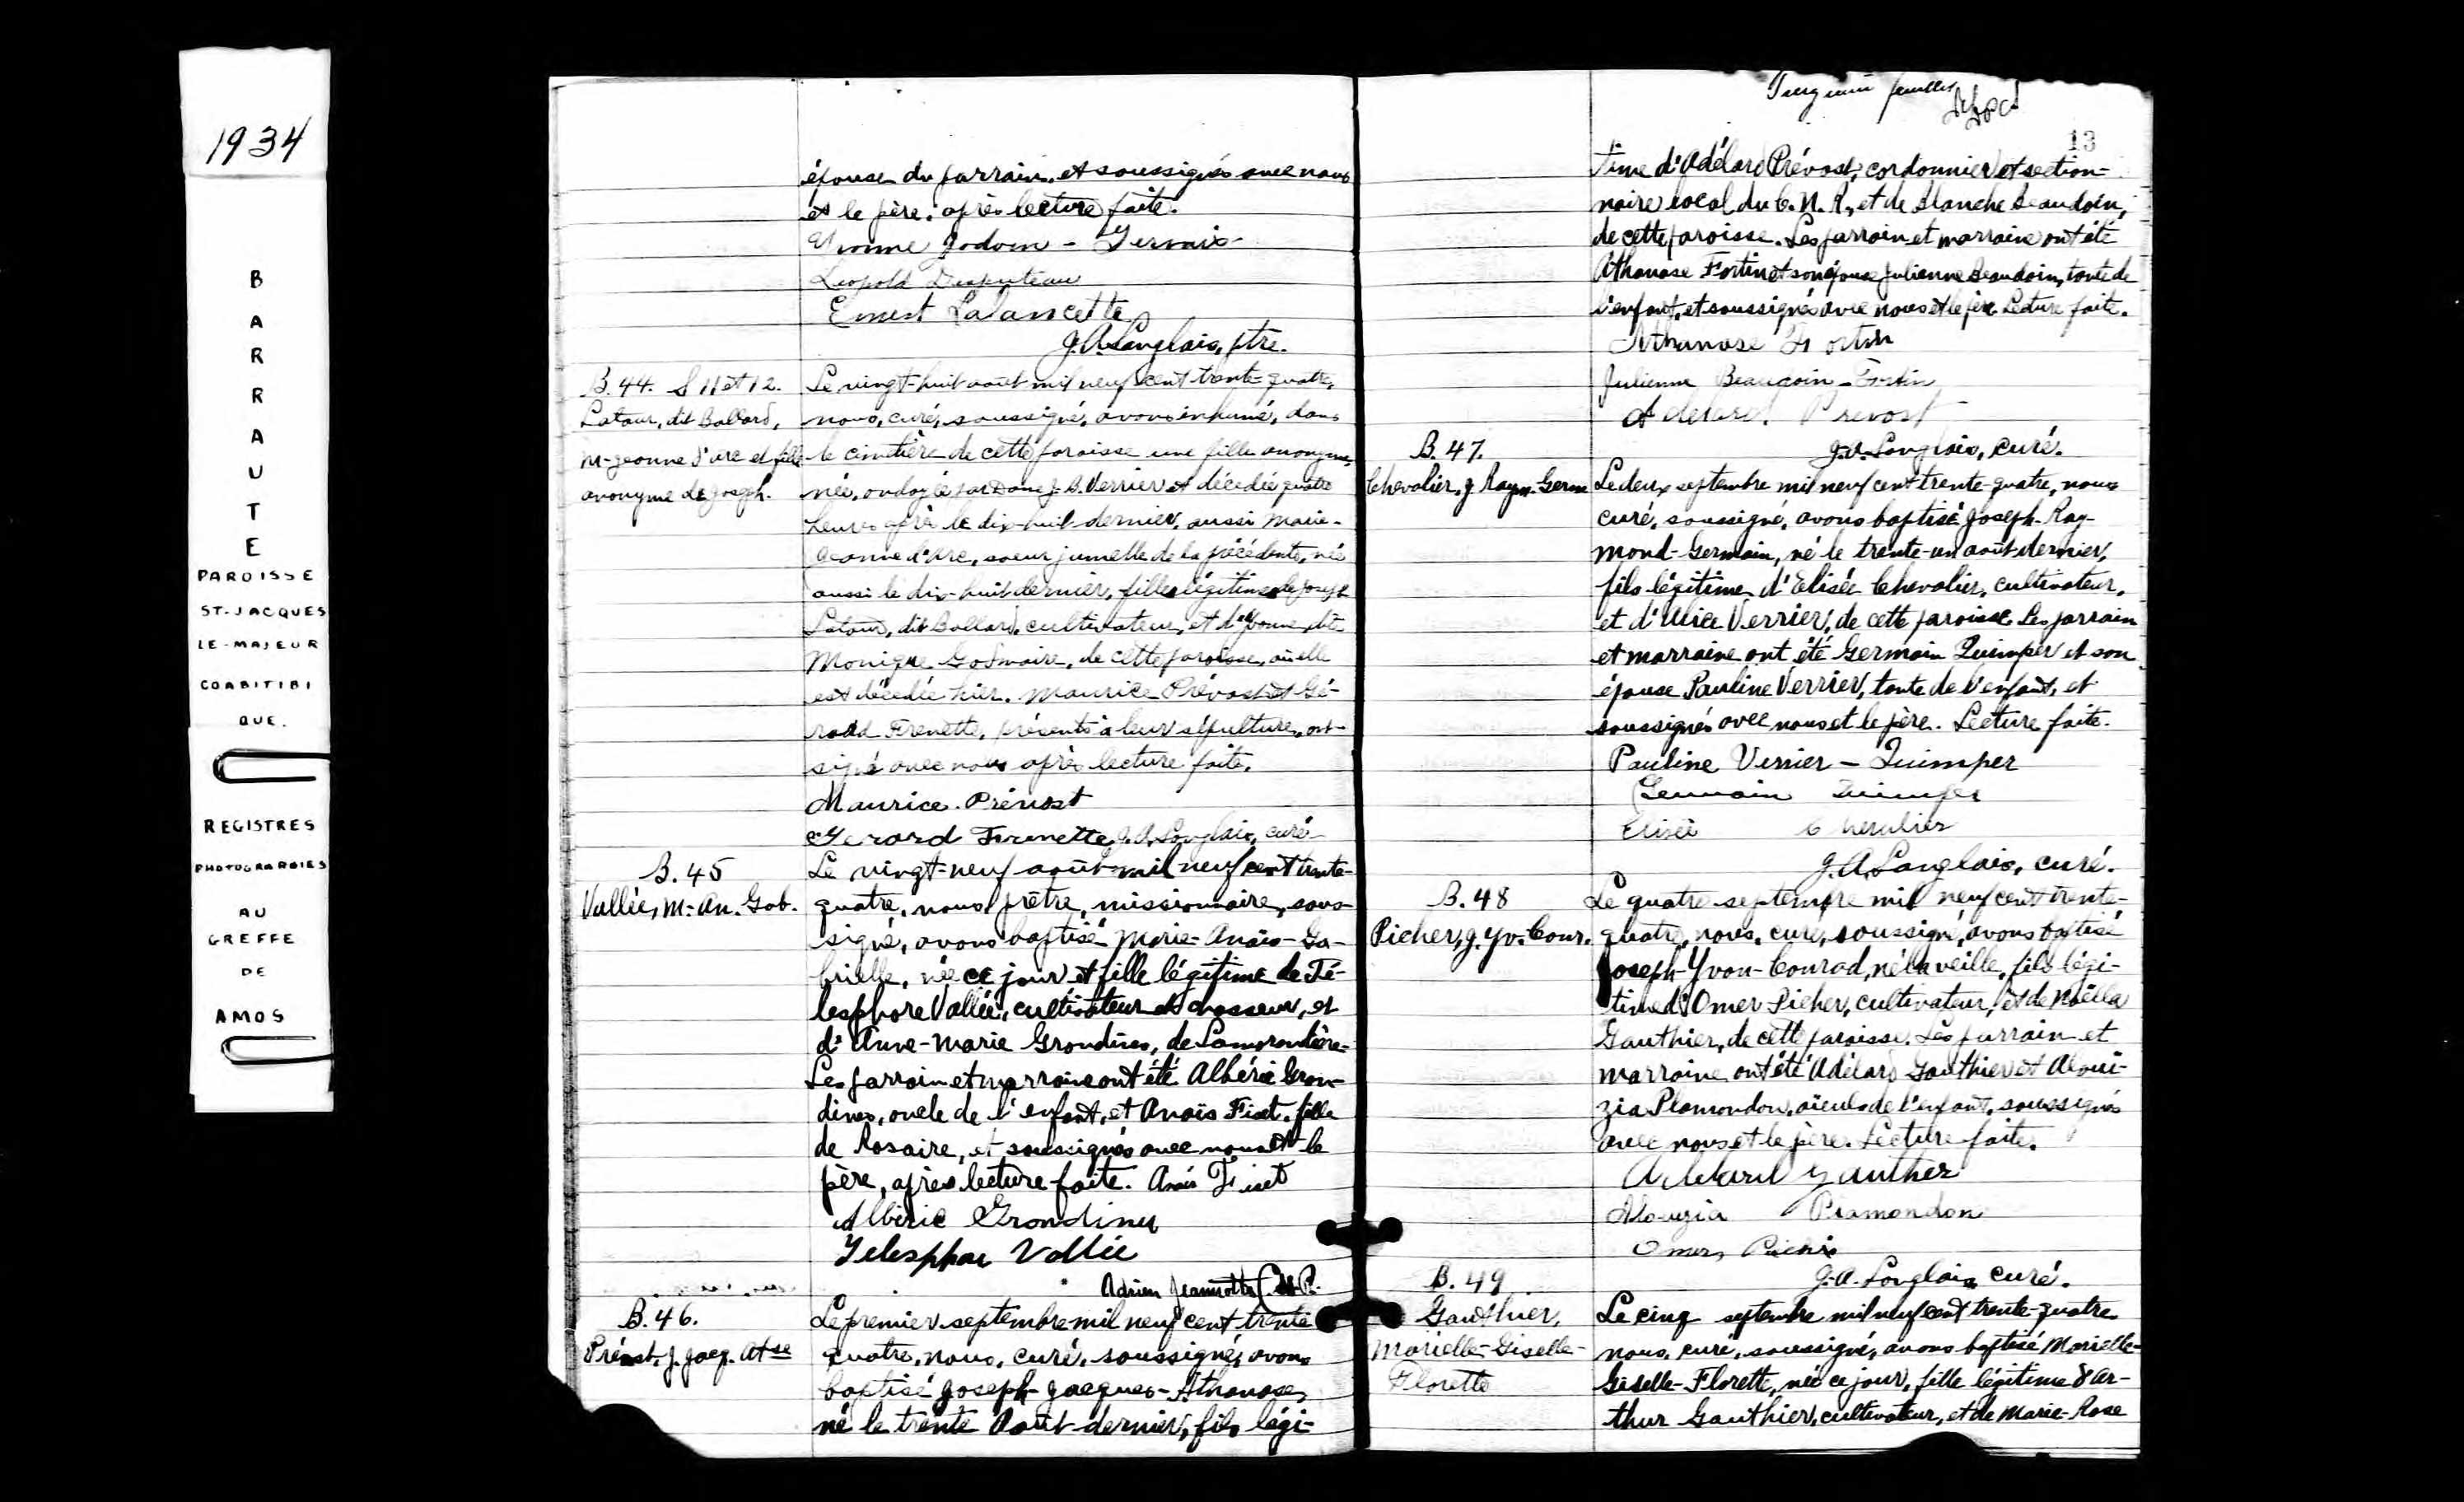 1934
B
A
R
R
A
U
T
E
PAROISSE
ST-JACQUES
LE-MAJEUR
COABITIBI
QUE.
REGISTRES
PHOTOGRAPHIES
AU
GREFFE
DE
AMOS
épouse du parrain, et soussignés avec nous
et le père, après lecture faite.
Yvonne Godouin - Gervais
Léopold
Ernest Lalancette
J.A. Langlais, ptre.
B.44. S 11 et 12.
Latour, dit Ballard,
M-Jeanne d'Arc et fille
anonyme de Joseph.
Le vingt-huit août mil neuf cent trente-quatre,
nous, curé, soussigné, avons inhumé, dans
le cimetière de cette paroisse une fille anonyme,
née, ondoyée par Dame J-B. Verrier et décédée quatre
heures après le dix-huit dernier, aussi Marie-
Jeanne d'Arc, soeur jumelle de la précédente, née
aussi le dix-huit dernier, filles légitimes de Joseph
Latour, dit Ballard, cultivateur, et d'Yvonne, dite
Monique Gosmaire, de cette paroisse, où elle
est décédée hier. Maurice Prévost et Gé-
rard Frenette, présents à leur sépulture, ont
signé avec nous après lecture faite.
Maurice Prévost
Gerard Frenette J.A. Langlais, curé
B.45
Vallée, M.-An. Gab.
Le vingt-neuf août mil neuf cent trente-
quatre, nous prêtre, missionnaire, sous-
signé, avons baptisé Marie-Anaïs-Ga-
brielle, née ce jour et fille légitime de Té-
lesphore Vallée, cultivateur et chasseur, et
d'Anne-Marie Grondines, de Lamorandière.
Les parrain et marraine ont été Albéric Gron-
dines, oncle de l'enfant, et Anaïs Fiset, fille
de Rosaire, et soussignés avec nous et le
père, après lecture faite. Anaïs Fiset
Albéric Grondines
Telesphor Vallée
Adrien Jeannotte
B.46.
Prévost, J. Jacq. Atse
Le premier septembre mil neuf cent trente
quatre, nous, curé, soussigné, avons
baptisé Joseph-Jacques-Athanase,
né le trente août dernier, fils légi-
feuilles
13
time d'Adélard Prévost, cordonnier et section-
naire local du C.N.R., et de Blanche Beaudoin,
de cette paroisse. Les parrain et marraine ont été
Athanase Fortin et son épouse Julienne Beaudoin, tante de
l'enfant, et soussignés avec nous et le père. Lecture faite.
Athanase Fortin
Julienne Beaudoin-Fortin
Adelard Prevost
J.A. Langlais, curé.
B.47.
Chevalier, J. Raym. Germ
Le deux septembre mil neuf cent trente-quatre, nous
curé, soussigné, avons baptisé Joseph-Ray-
mond-Germain, né le trente-un août dernier,
fils légitime d'Elisée Chevalier, cultivateur,
et d'Alice Verrier, de cette paroisse. Les parrain
et marraine ont été Germain Quimper et son
épouse Pauline Verrier, tante de l'enfant, et
soussignés avec nous et le père. Lecture faite.
Pauline Verrier - Quimper
Germain Quimper
Elisée Chevalier
J.A. Langlais, curé.
B.48
Picher, J. Yv. Conr.
Le quatre septembre mil neuf cent trente-
quatre, nous, curé, soussigné, avons baptisé
Joseph-Yvon-Conrad, né la veille, fils légi-
time d'Omer Picher, cultivateur, et de Noëlla
Gauthier, de cette paroisse. Les parrain et
marraine ont été Adélard Gauthier et Aloui-
zia Plamondon, aïeuls de l'enfant, soussignés
avec nous et le père. Lecture faite.
Adelard Gauthier
Alouzia Plamondon
Omer Picher
J.A. Langlais curé.
B.49
Gauthier,
Marielle-Giselle-
Florette
Le cinq septembre mil neuf cent trente-quatre
nous, curé, soussigné, avons baptisé Marielle-
Giselle-Florette, née ce jour, fille légitime d'Ar-
thur Gauthier, cultivateur, et de Marie-Rose